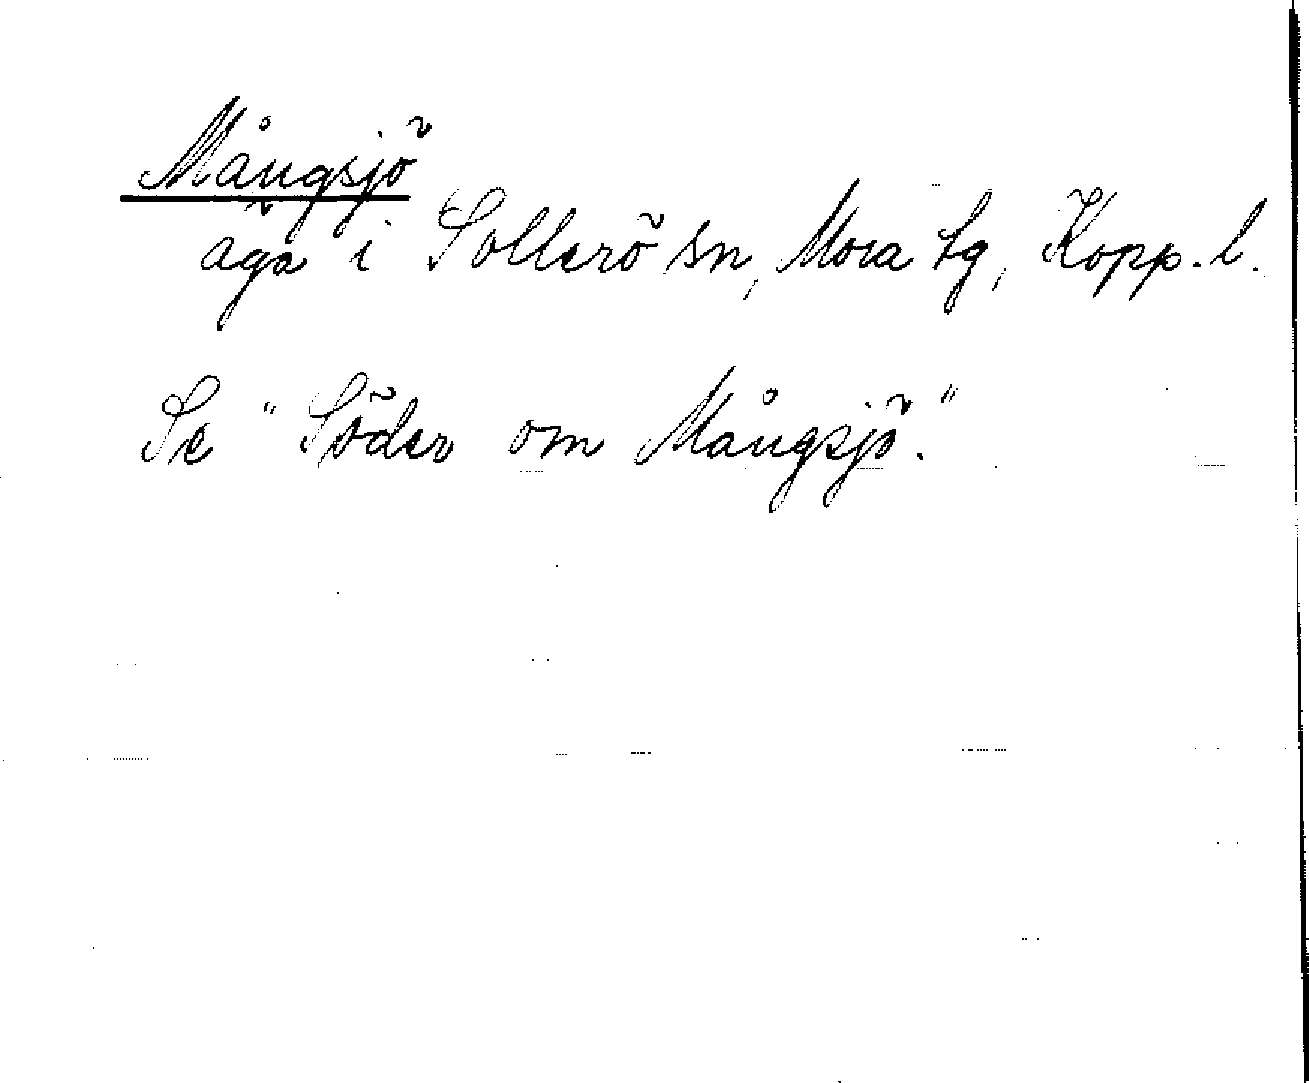 Mångsjö
äga i Sollerö sn, Mora tg, Kopp. l.
Se "Söder om Mångsjö."